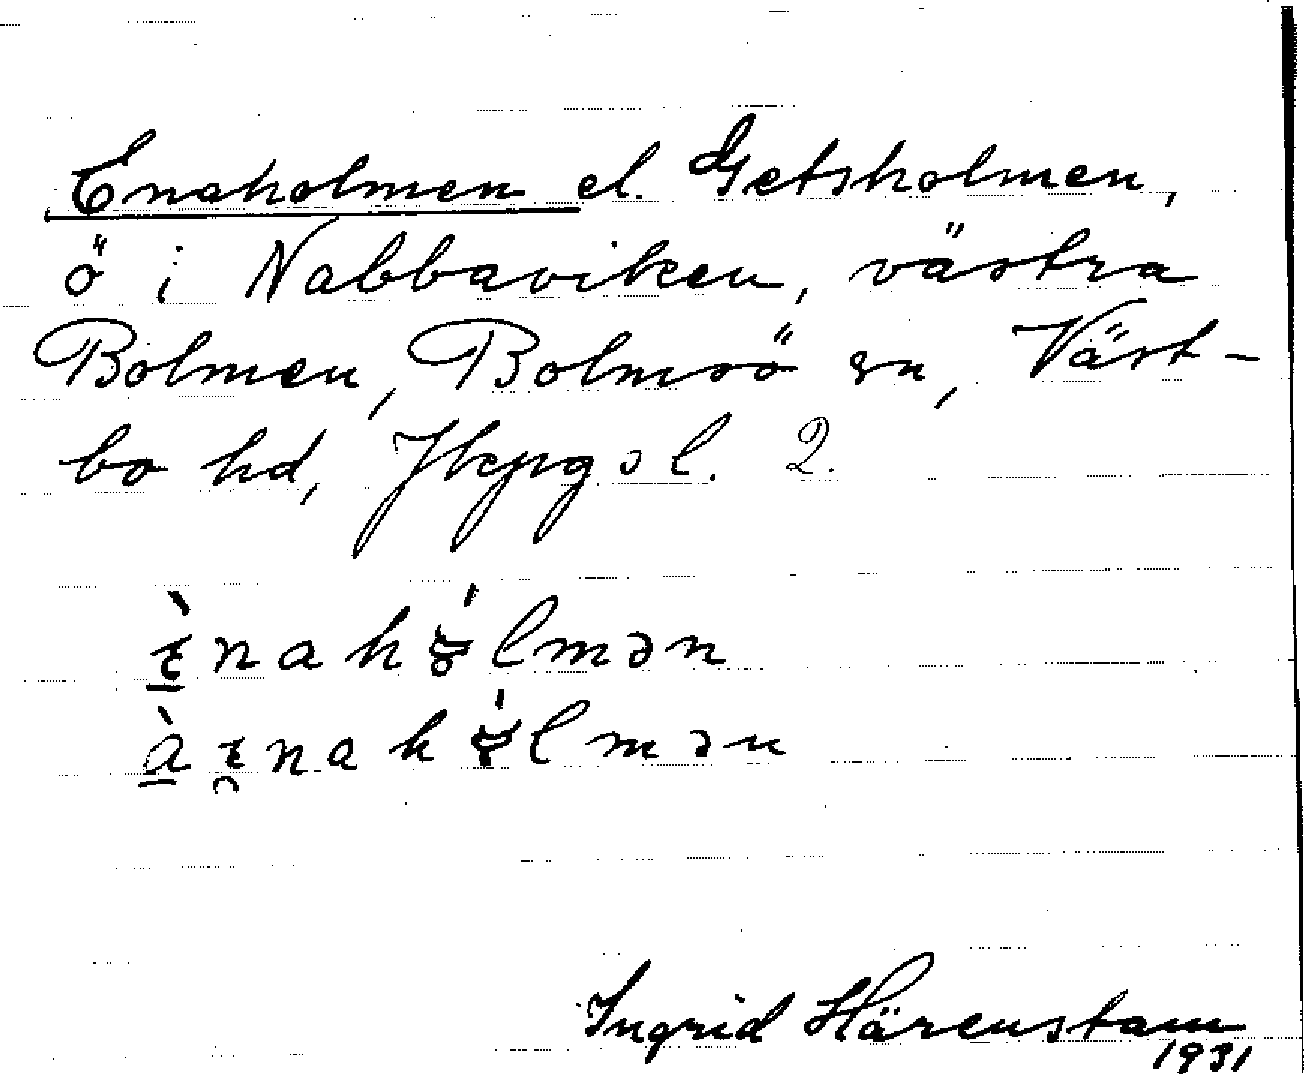 Enaholmen el. Getsholmen,
ö i Nabbaviken, västra
Bolmen, Bolmsö sn, Väst-
bo hd, Jkpgs l. 2.
Ingrid Härenstam
1931